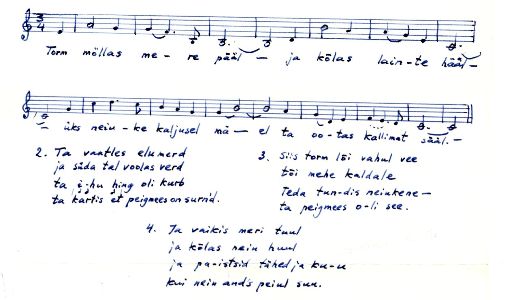 Torm möllas me-re pääl- ja kõlas lain-te hääl-
üks neiu-ke kaljusel mä-el ta oo-tas kallimat sääl.-
2. Ta vaatles elumerd
ja süda tal voolas verd
ta i-hu hing oli kurb
ta kartis et peigmees on surnd.
3. Siis torm lõi vahul vee
tõi mehe kaldale
Teda tun-dis neiukene-
ta peigmees o-li see.
4. Ja vaikis meri tuul
ja kõlas neiu huul
ja pa-istsid tähed ja ku-u
kui neiu andis peiul suu.